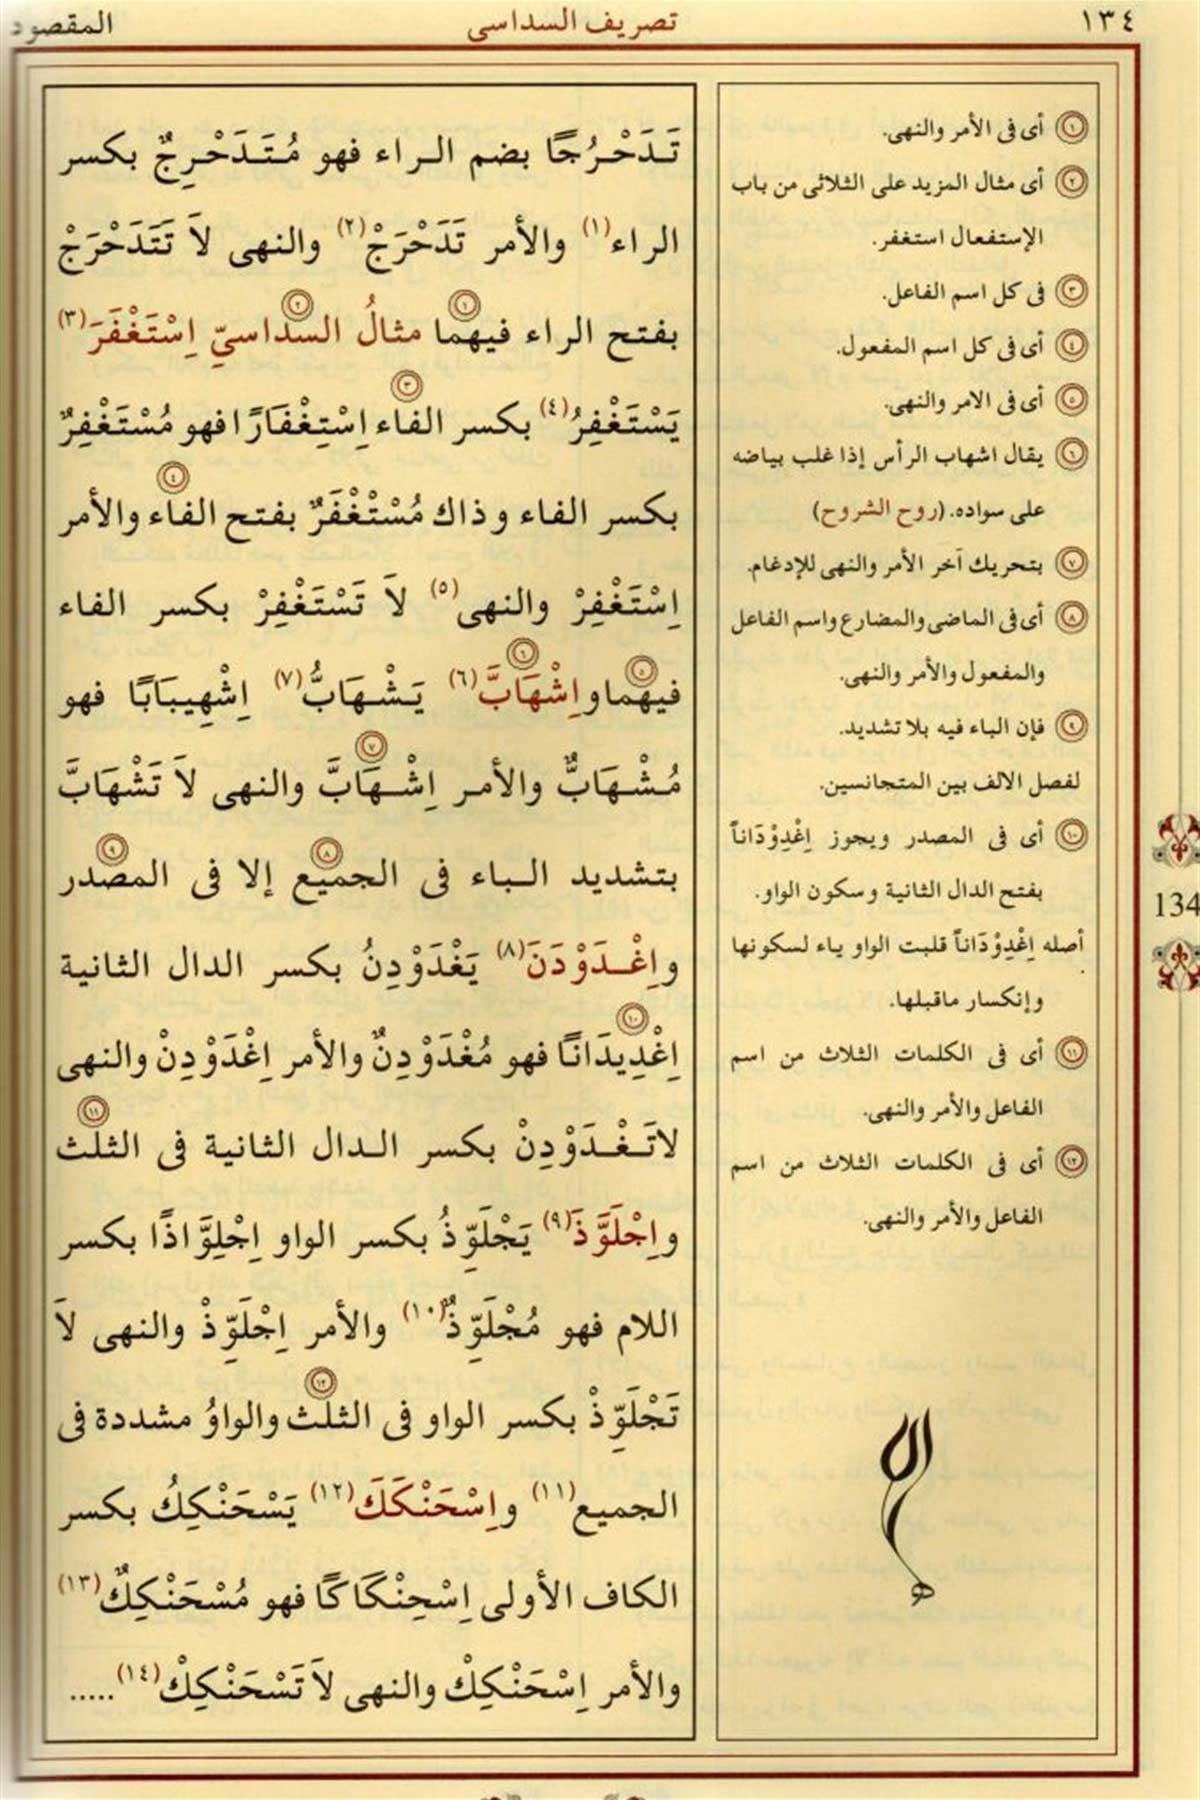 ١٣٤ تصريف السداسى المقصود
تَدَحْرُجًا بضم الراء فهو مُتَدَحْرِجٌ بكسر
الراء(١) والأمر تَدَحْرَجْ(٢) والنهى لاَ تَتَدَحْرَجْ
بفتح الراء فيهما ١ مثالُ السداسىِّ ٢ اِسْتَغْفَرَ(٣)
يَسْتَغْفِرُ(٤) بكسر الفاء ٣ اِسْتِغْفَارًا فهو مُسْتَغْفِرٌ
بكسر الفاء وذاك مُسْتْغْفَرٌ بفتح الفاء ٤ والأمر
اِسْتَغْفِرْ والنهى(٥) لاَ تَسْتَغْفِرْ بكسر الفاء
فيهما ٥ واِشْهَابَّ ٦ (٦) يَشْهَابُّ(٧) اِشْهِيبَابًا فهو
مُشْهَابٌّ والأمر اِشْهَابَّ ٧ والنهى لاَ تَشْهَابَّ
بتشديد الباء فى الجميع ٨ إلا فى المصدر ٩
واِغْدَوْدَنَ(٨) يَغْدَوْدِنُ بكسر الدال الثانية
اِغْدِيدَانًا ١٠ فهو مُغْدَوْدِنٌ والأمر اِغْدَوْدِنْ والنهى
لاتَغْدَوْدِنْ بكسر الدال الثانية فى الثلث ١١
واِجْلَوَّذَ(٩) يَجْلَوِّذُ بكسر الواو اِجْلِوَّاذًا بكسر
اللام فهو مُجْلَوِّذٌ(١٠) والأمر اِجْلَوِّذْ والنهى لاَ
تَجْلَوِّذْ بكسر الواو فى الثلث ١٢ والواوُ مشددة فى
الجميع(١١) واِسْحَنْكَكَ(١٢) يَسْحَنْكِكُ بكسر
الكاف الأولى اِسْحِنْكَاكًا فهو مُسْحَنْكِكٌ(١٣)
والأمر اِسْحَنْكِكْ والنهى لاَ تَسْحَنْكِكْ(١٤).....
١ أى فى الأمر والنهى.
٢ أى مثال المزيد على الثلاثى من باب
الإستفعال استغفر.
٣ فى كل اسم الفاعل.
٤ أى فى كل اسم المفعول.
٥ أى فى الامر والنهى.
٦ يقال اشهاب الرأس إذا غلب بياضه
على سواده. (روح الشروح)
٧ بتحريك آخر الأمر والنهى للإدغام.
٨ أى فى الماضى والمضارع واسم الفاعل
والمفعول والأمر والنهى.
٩ فإن الباء فيه بلا تشديد.
لفصل الالف بين المتجانسين.
١٠ أى فى المصدر ويجوز اِغْدِوْدَاناً
بفتح الدال الثانية وسكون الواو.
أصله اِغْدِوْدَاناً قلبت الواو ياء لسكونها
وإنكسار ماقبلها.
١١ أى فى الكلمات الثلاث من اسم
الفاعل والأمر والنهى.
١٢ أى فى الكلمات الثلاث من اسم
الفاعل والأمر والنهى.
134